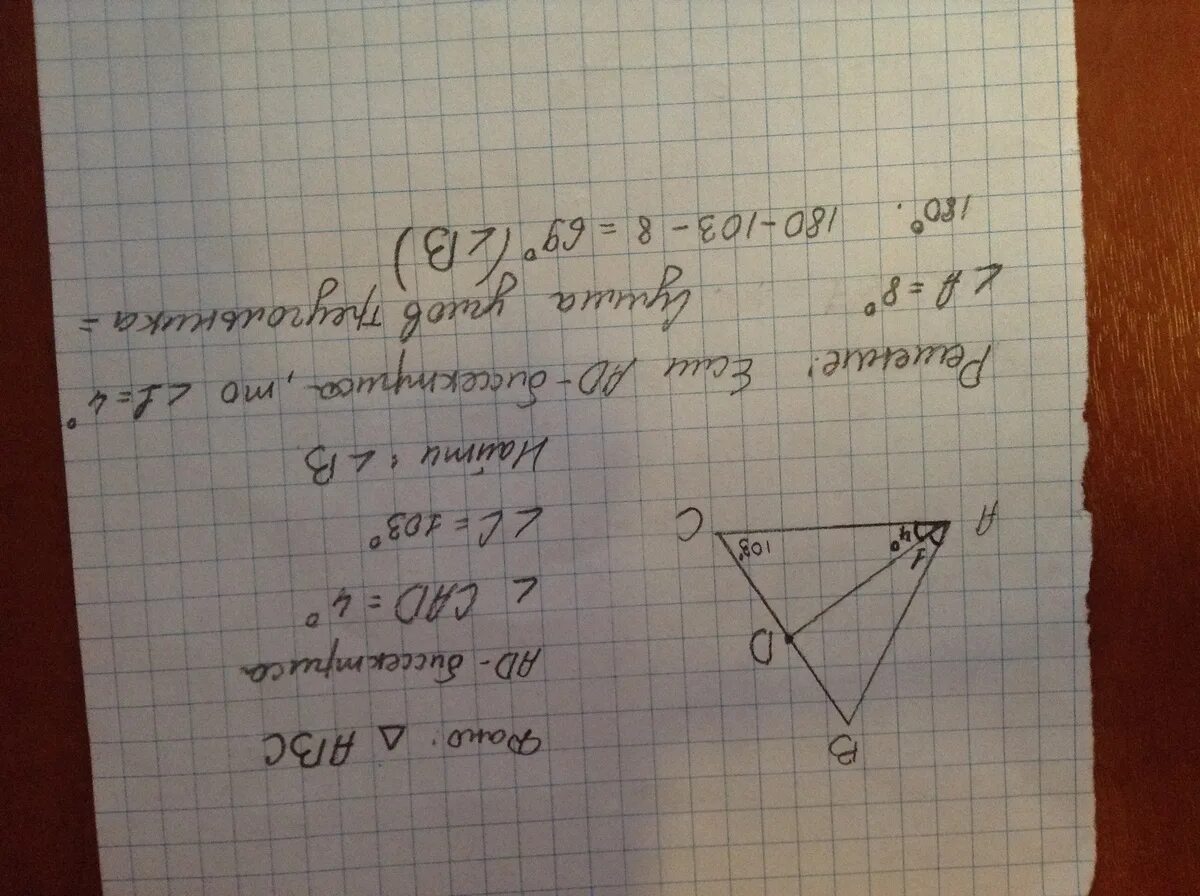 Дано: △ ABC
AD - биссектриса
∠ CAD = 4°
∠C = 103°
Найти: ∠B
B
D
1
4°
103°
A
C
Решение: Если AD - биссектриса, то ∠1 = 4°
∠A = 8° Сумма углов треугольника =
180°. 180 - 103 - 8 = 69° (∠B)